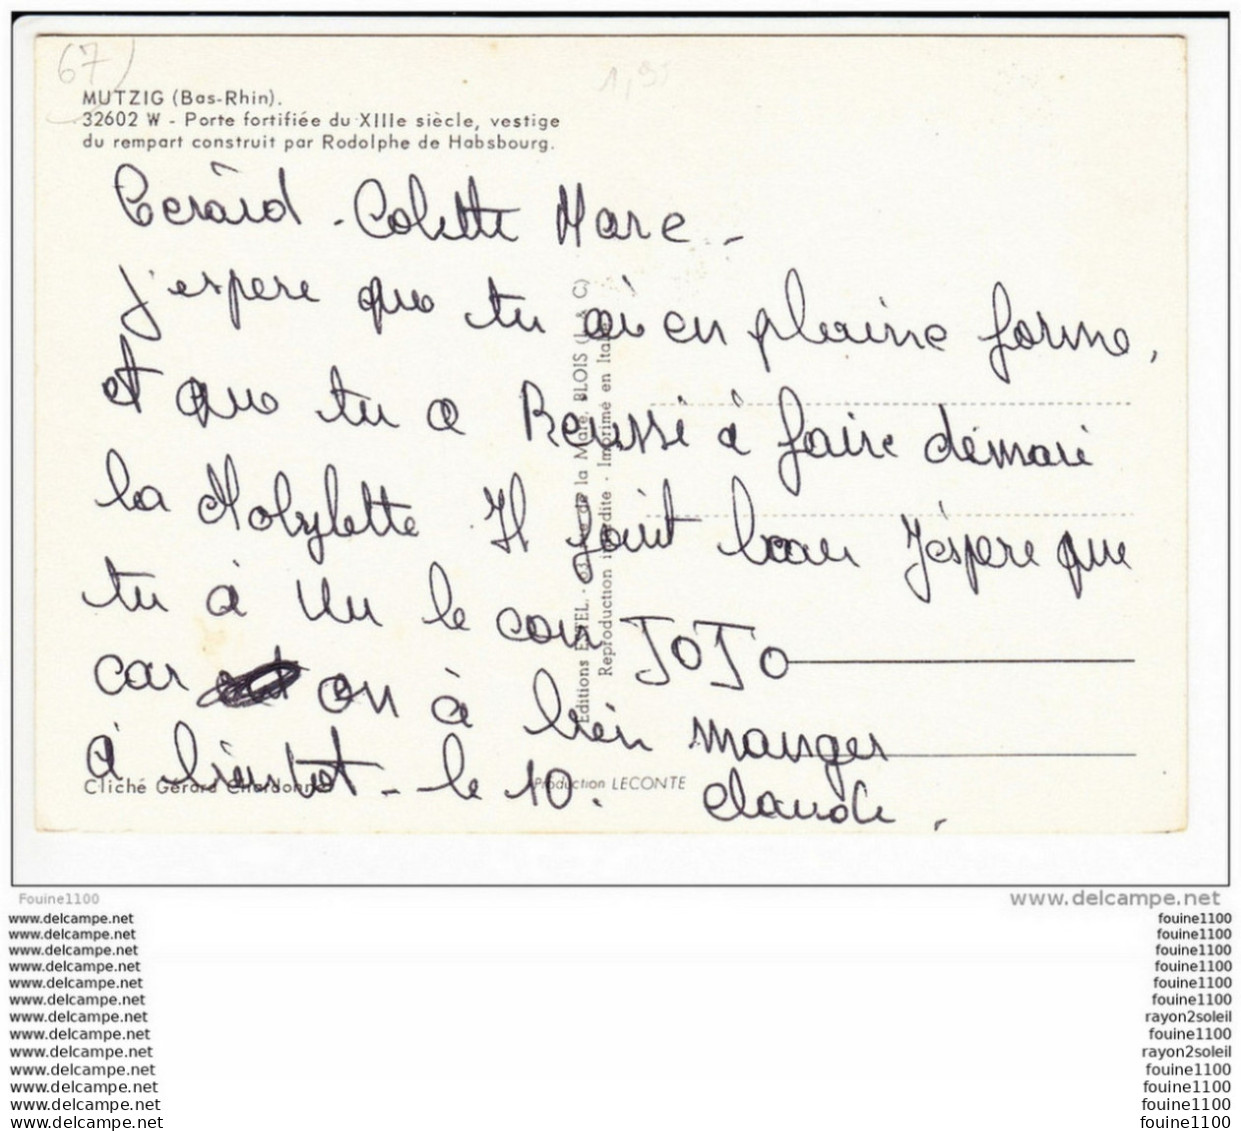 67)
1,95
MUTZIG (Bas-Rhin).
32602 W - Porte fortifiée du XIIIe siècle, vestige
du rempart construit par Rodolphe de Habsbourg.
Gerârd - Colette Marc -
j'espere que tu ai en pleine forme,
et que tu a Reussi à faire démaré
la Mobylette Il fait beau J'éspere que
tu à vu le cou JOJO
car on à bien manger
à bientot - le 10. Claude.
Cliché Gérard Chardonnet
Production LECONTE
Editions ESTEL - de la Mare, BLOIS (L. & C)
Reproduction interdite - Imprimé en Italie
Fouine1100
www.delcampe.net
www.delcampe.net
www.delcampe.net
www.delcampe.net
www.delcampe.net
www.delcampe.net
www.delcampe.net
www.delcampe.net
www.delcampe.net
www.delcampe.net
www.delcampe.net
www.delcampe.net
www.delcampe.net
www.delcampe.net
fouine1100
fouine1100
fouine1100
fouine1100
fouine1100
fouine1100
rayon2soleil
fouine1100
rayon2soleil
fouine1100
fouine1100
fouine1100
fouine1100